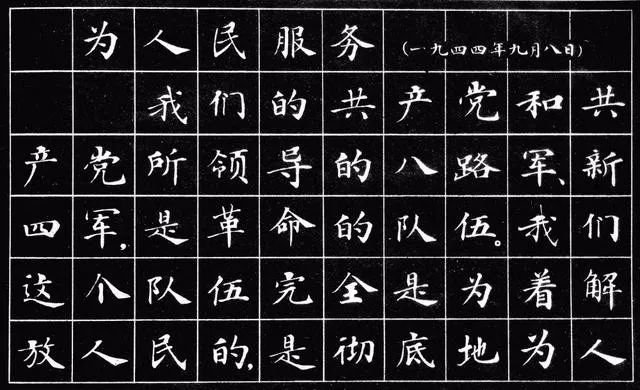 为人民服务 (一九四四年九月八日)
我们的共产党和共
产党所领导的八路军、新
四军,是革命的队伍。我们
这个队伍完全是为着解
放人民的,是彻底地为人